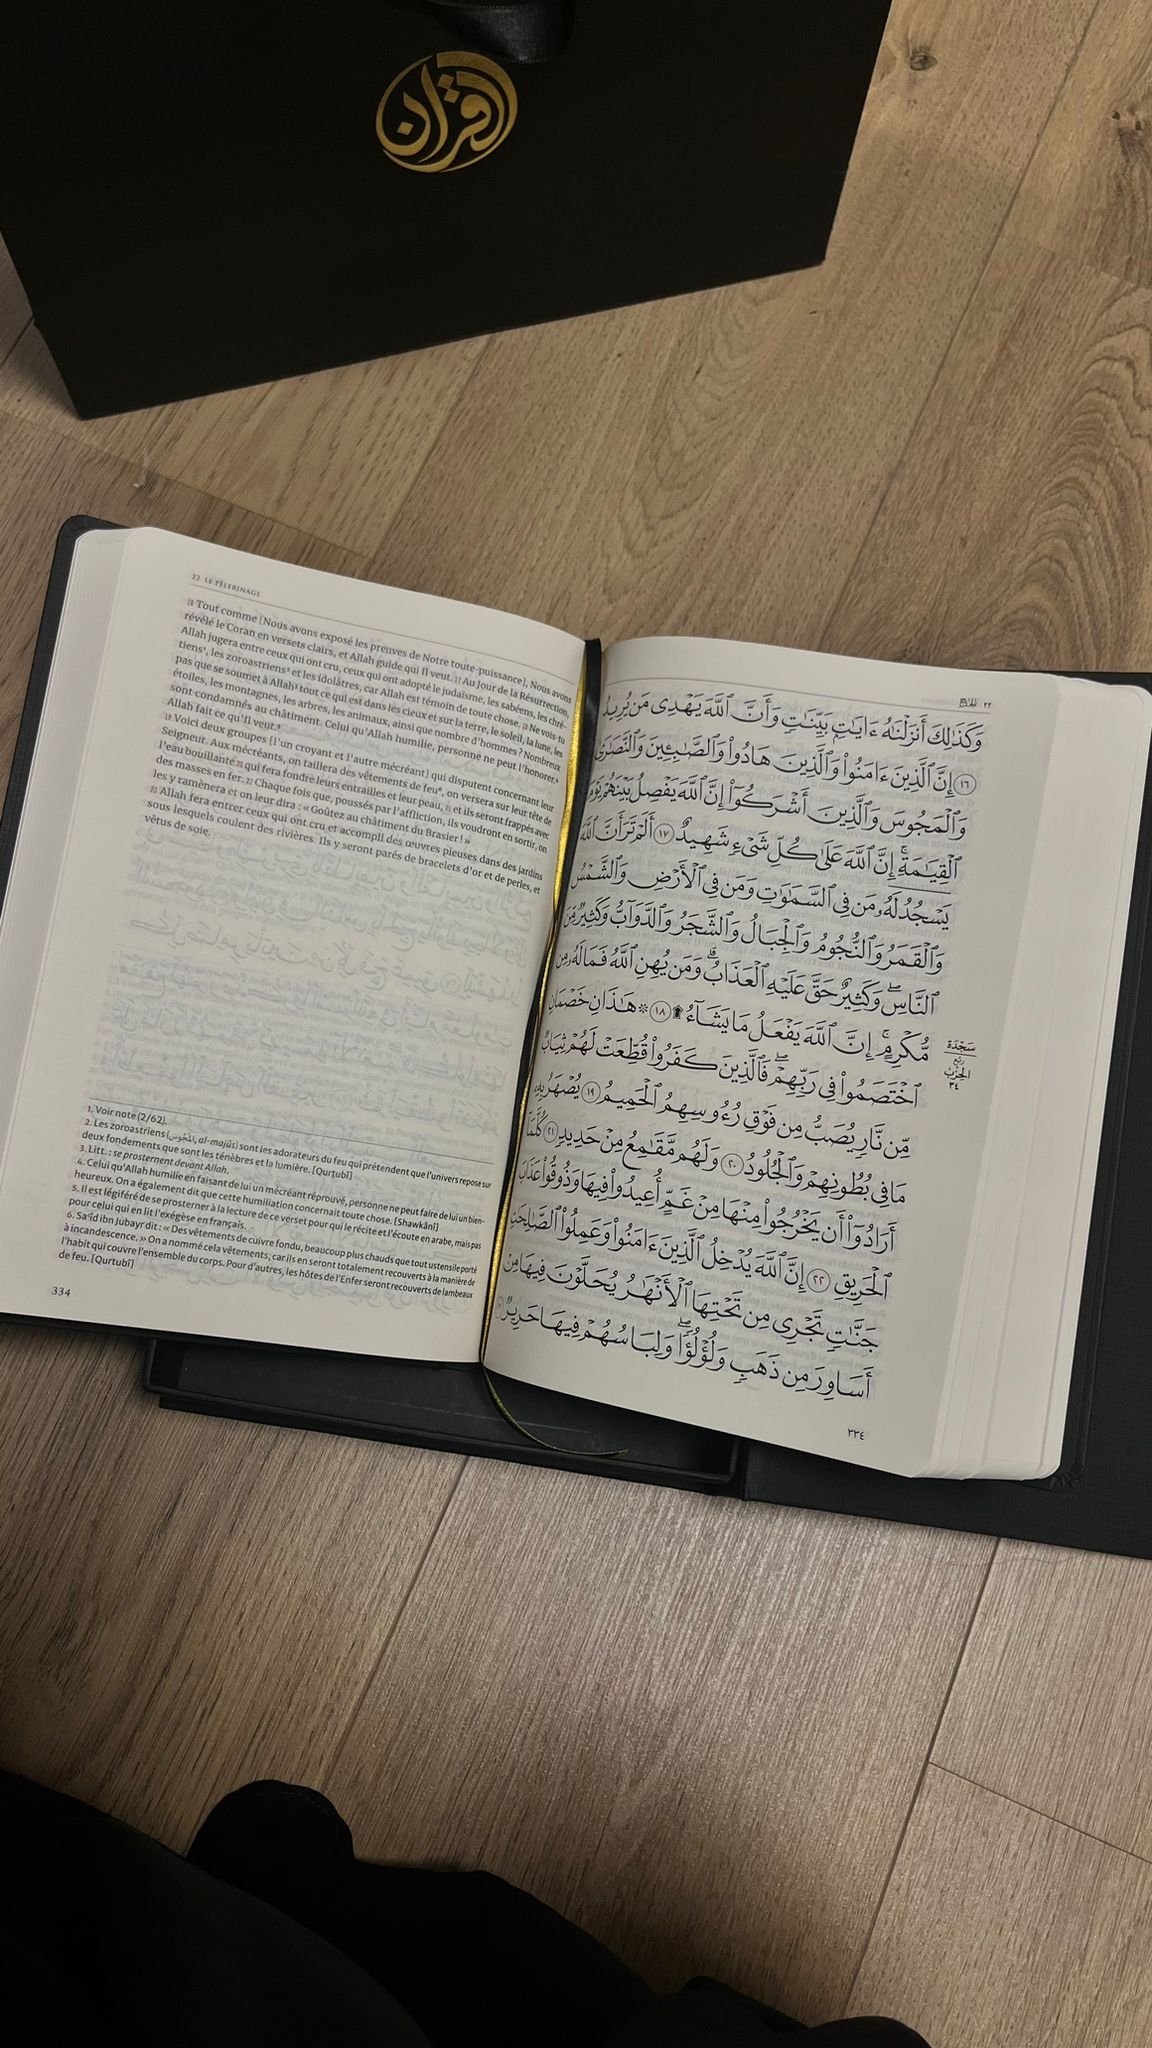 القرآن
22 LE PÈLERINAGE
16 Tout comme [Nous avons exposé les preuves de Notre toute-puissance], Nous avons
révélé le Coran en versets clairs, et Allah guide qui Il veut. 17 Au Jour de la Résurrection,
Allah jugera entre ceux qui ont cru, ceux qui ont adopté le judaïsme, les sabéens, les chré-
tiens¹, les zoroastriens² et les idolâtres, car Allah est témoin de toute chose. 18 Ne vois-tu
pas que se soumet à Allah³ tout ce qui est dans les cieux et sur la terre, le soleil, la lune, les
étoiles, les montagnes, les arbres, les animaux, ainsi que nombre d'hommes? Nombreux
sont condamnés au châtiment. Celui qu'Allah humilie, personne ne peut l'honorer.⁴
Allah fait ce qu'Il veut.⁵
19 Voici deux groupes [l'un croyant et l'autre mécréant] qui disputent concernant leur
Seigneur. Aux mécréants, on taillera des vêtements de feu⁶, on versera sur leur tête de
l'eau bouillante 20 qui fera fondre leurs entrailles et leur peau, 21 et ils seront frappés avec
des masses en fer. 22 Chaque fois que, poussés par l'affliction, ils voudront en sortir, on
les y ramènera et on leur dira : « Goûtez au châtiment du Brasier ! »
23 Allah fera entrer ceux qui ont cru et accompli des œuvres pieuses dans des jardins
sous lesquels coulent des rivières. Ils y seront parés de bracelets d'or et de perles, et
vêtus de soie.
1. Voir note (2/62).
2. Les zoroastriens (المجوس, al-majûs) sont les adorateurs du feu qui prétendent que l'univers repose sur
deux fondements que sont les ténèbres et la lumière. [Qurtubî]
3. Litt. : se prosternent devant Allah.
4. Celui qu'Allah humilie en faisant de lui un mécréant réprouvé, personne ne peut faire de lui un bien-
heureux. On a également dit que cette humiliation concernait toute chose. [Shawkânî]
5. Il est légiféré de se prosterner à la lecture de ce verset pour qui le récite et l'écoute en arabe, mais pas
pour celui qui en lit l'exégèse en français.
6. Sa'îd ibn Jubayr dit : « Des vêtements de cuivre fondu, beaucoup plus chauds que tout ustensile porté
à incandescence. » On a nommé cela vêtements, car ils en seront totalement recouverts à la manière de
l'habit qui couvre l'ensemble du corps. Pour d'autres, les hôtes de l'Enfer seront recouverts de lambeaux
de feu. [Qurtubî]
334
٢٢ الحج
وَكَذَٰلِكَ أَنزَلْنَٰهُ ءَايَٰتٍۭ بَيِّنَٰتٍ وَأَنَّ ٱللَّهَ يَهْدِى مَن يُرِيدُ
١٦ إِنَّ ٱلَّذِينَ ءَامَنُوا۟ وَٱلَّذِينَ هَادُوا۟ وَٱلصَّٰبِـِٔينَ وَٱلنَّصَٰرَىٰ
وَٱلْمَجُوسَ وَٱلَّذِينَ أَشْرَكُوٓا۟ إِنَّ ٱللَّهَ يَفْصِلُ بَيْنَهُمْ يَوْمَ
ٱلْقِيَٰمَةِ ۚ إِنَّ ٱللَّهَ عَلَىٰ كُلِّ شَىْءٍ شَهِيدٌ ١٧ أَلَمْ تَرَ أَنَّ ٱللَّهَ
يَسْجُدُ لَهُۥ مَن فِى ٱلسَّمَٰوَٰتِ وَمَن فِى ٱلْأَرْضِ وَٱلشَّمْسُ
وَٱلْقَمَرُ وَٱلنُّجُومُ وَٱلْجِبَالُ وَٱلشَّجَرُ وَٱلدَّوَآبُّ وَكَثِيرٌ مِّنَ
ٱلنَّاسِ ۖ وَكَثِيرٌ حَقَّ عَلَيْهِ ٱلْعَذَابُ ۗ وَمَن يُهِنِ ٱللَّهُ فَمَا لَهُۥ مِن
مُّكْرِمٍ ۚ إِنَّ ٱللَّهَ يَفْعَلُ مَا يَشَآءُ ۩ ١٨ ۞ هَٰذَانِ خَصْمَانِ
ٱخْتَصَمُوا۟ فِى رَبِّهِمْ ۖ فَٱلَّذِينَ كَفَرُوا۟ قُطِّعَتْ لَهُمْ ثِيَابٌ
مِّن نَّارٍ يُصَبُّ مِن فَوْقِ رُءُوسِهِمُ ٱلْحَمِيمُ ١٩ يُصْهَرُ بِهِۦ
مَا فِى بُطُونِهِمْ وَٱلْجُلُودُ ٢٠ وَلَهُم مَّقَٰمِعُ مِنْ حَدِيدٍ ٢١ كُلَّمَآ
أَرَادُوٓا۟ أَن يَخْرُجُوا۟ مِنْهَا مِنْ غَمٍّ أُعِيدُوا۟ فِيهَا وَذُوقُوا۟ عَذَابَ
ٱلْحَرِيقِ ٢٢ إِنَّ ٱللَّهَ يُدْخِلُ ٱلَّذِينَ ءَامَنُوا۟ وَعَمِلُوا۟ ٱلصَّٰلِحَٰتِ
جَنَّٰتٍ تَجْرِى مِن تَحْتِهَا ٱلْأَنْهَٰرُ يُحَلَّوْنَ فِيهَا مِنْ
أَسَاوِرَ مِن ذَهَبٍ وَلُؤْلُؤًا ۖ وَلِبَاسُهُمْ فِيهَا حَرِيرٌ
سَجْدَة
رُبْع
الحِزْب
٣٤
٣٣٤